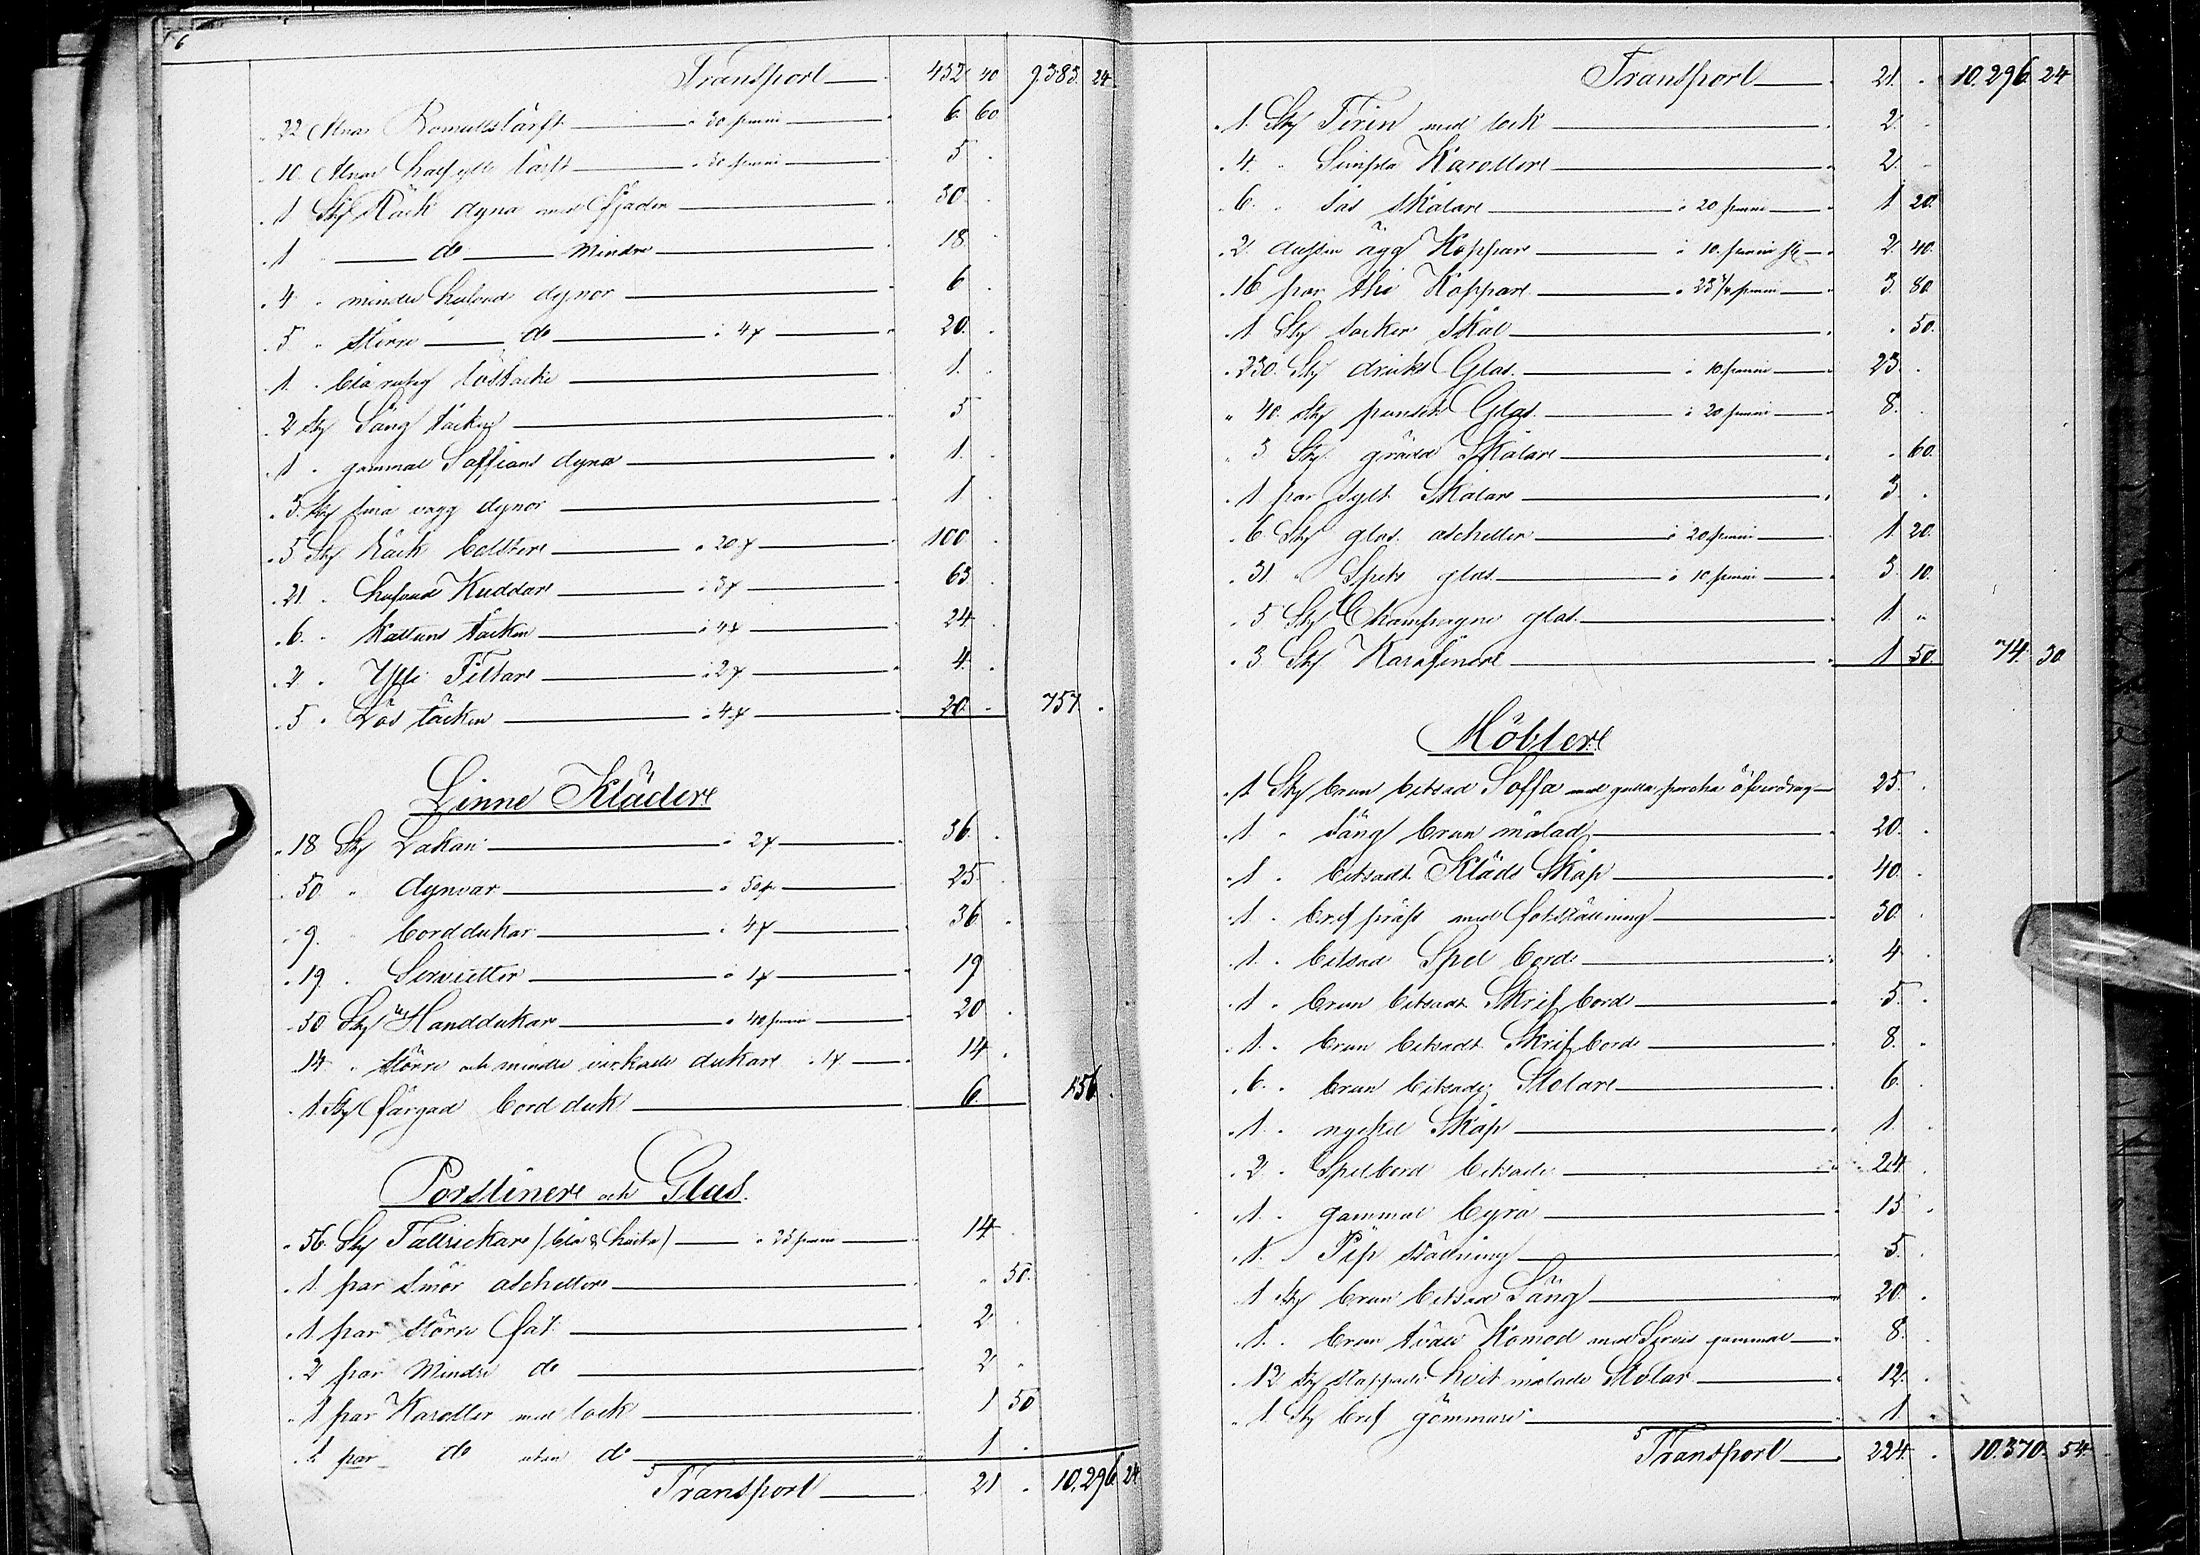 6
Transport 452 40 9.383 24
22 Alnar Bomullslärft à 30 penni 6 60
10 Alnar halfylle lärft à 50 penni 5
1 Stg Räck dyna med Fjäder 30
1 do Mindre 18
4 mindre hufvud dynor 6
5 större do à 4 20
1 blårutig löstäcke 1
2 Stg Säng täcken 5
1 gammal Saffians dyna 1
3 Stg små vagg dynor 1
5 Stg Räck bolstrar à 20 100
21 hufvud Kuddar à 3 63
6 Kattuns täcken à 4 24
2 Ylle Filtar à 2 4
5 Lös täcken à 4 20 757
Linne Kläder
18 Stg Lakan à 2 36
50 dynvar à 50 p 25
9 borddukar à 4 36
19 Servietter à 1 19
50 Stg Handdukar à 40 penni 20
14 större och mindre virkade dukar à 1 14
1 Stg färgad bordduk 6 156
Porsliner och Glas
56 Stg Tallrickar (blå & hvita) à 25 penni 14
1 par Smör aschetter 50
1 par större Fat 2
2 par Mindre do 2
1 par Karotter med lock 1 50
1 par do utan do 1
Transport 21 10.296 24
Transport 21 10.296 24
1 Stg Terin med lock 2
4 Simpla Karotter 2
6 sås skålar à 20 penni 1 20
2 dussin ägg Koppar à 10 penni st 2 40
16 par the Koppar à 23 3/4 penni 3 80
1 Stg socker skål 50
230 Stg dricks Glas à 10 penni 23
40 Stg punsch Glas à 20 penni 8
3 Stg grädd Skålar 60
1 par Sylt Skålar 3
6 Stg glas aschetter à 20 penni 1 20
31 Spets glas à 10 penni 3 10
5 Stg Champagne glas 1 "
3 Stg Karafiner 1 50 74 30
Möbler
1 Stg brun betsad Soffa med gutta percha öfverdrag 25
1 Säng brun målad 20
1 betsadt Kläds Skåp 40
1 bref präss med fotställning 30
1 betsad Spel bord 4
1 brun betsadt Skrif bord 5
1 brun betsadt Skrif bord 8
6 brun betsade Stolar 6
1 nyckel Skåp 1
2 Spelbord betsade 24
1 gammal byrå 15
1 Pip ställning 5
1 Stg brun betsad Säng 20
1 brun tvätt Komod med Servis gammal 8
12 Stg stoppade hvit målade Stolar 12
1 Stg bref gömmare 1
Transport 224 10.370 54